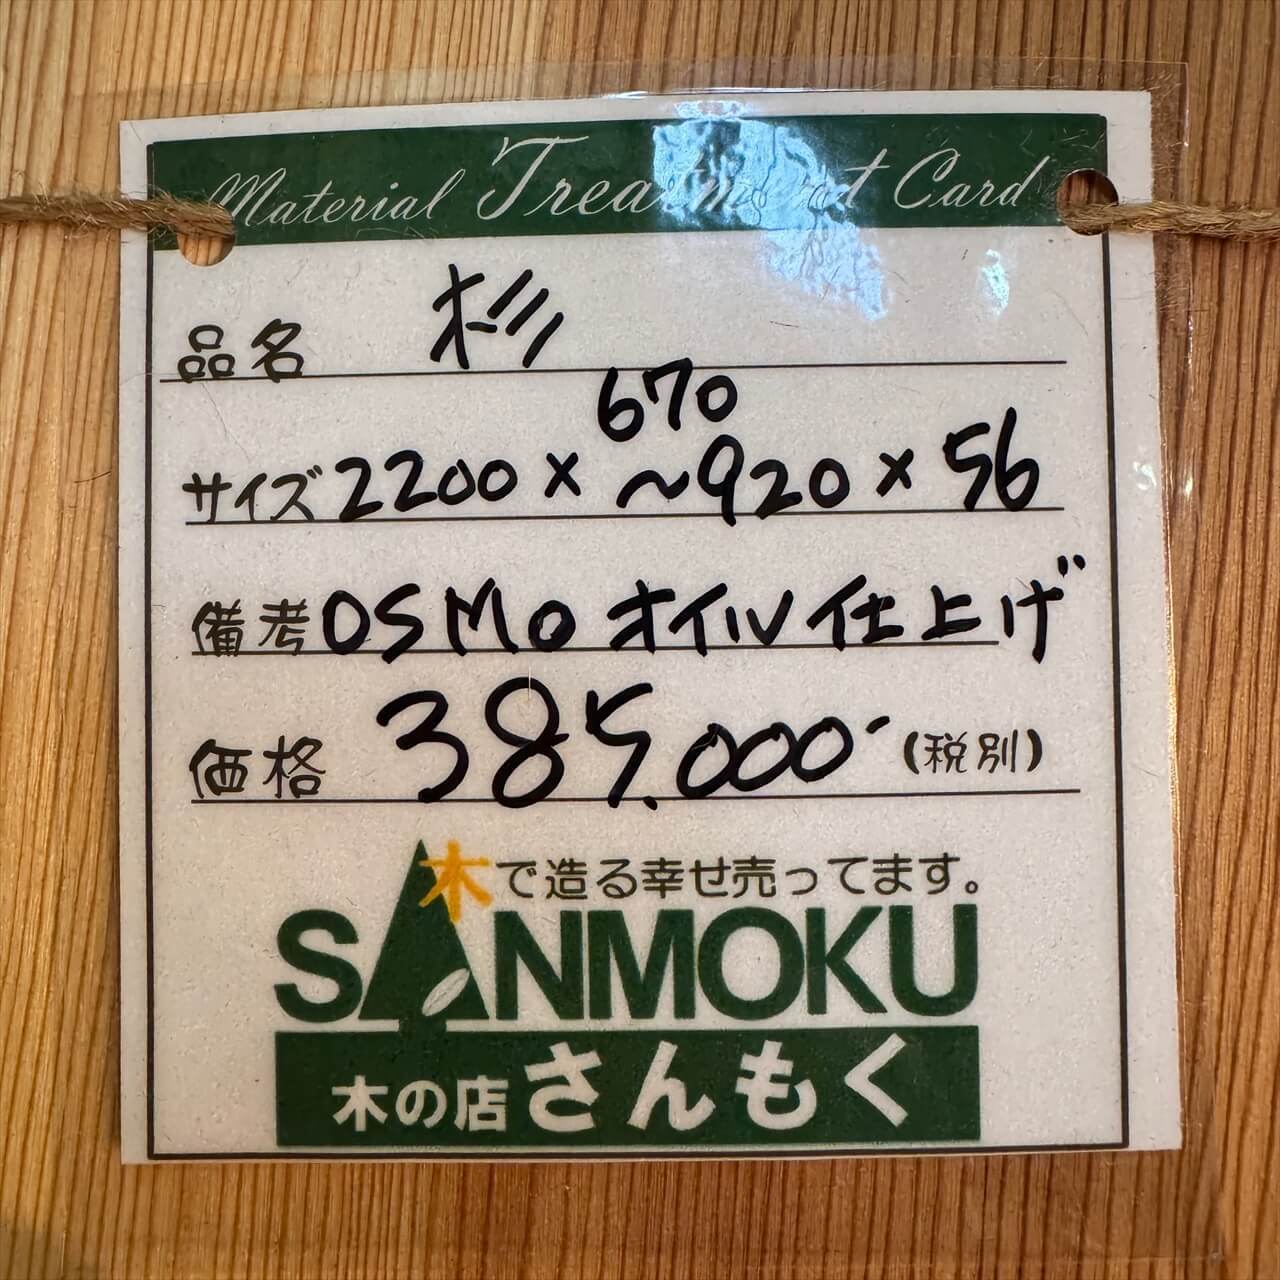 Material Treatment Card
品名 杉
670
サイズ 2200 × ~920 × 56
備考 OSMO オイル仕上げ
価格 385.000- (税別)
木で造る幸せ売ってます。
SANMOKU
木の店さんもく